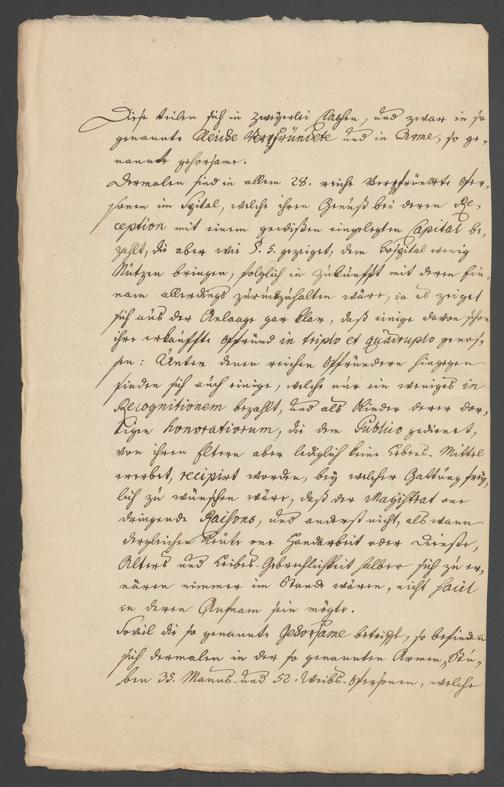 Diese teilen sich in zweyerlei Classen, und zwar in so
genannte Reiche Verpfründete und in Arme, so ge-
nannte gehorsame.
Dermalen sind in allem 28. reiche Verpfründete Per-
sonen im Spital, welche ihren Genuß bei deren Re-
ception mit einem gewißen eingelegten Capital be-
zahlt, die aber wie §. 5. gezeiget, dem Hospital wenig
Nutzen bringen, folglich in zukünfft mit deren Ein-
nam allerdings zurückzuhalten wäre, ja es zeiget
sich aus der Anlaage gar klar, daß einige davon schon
ihre erkauffte Pfründ in triplo et quadruplo genos-
sen: Unter denen reichen Pfründern hingegen
finden sich auch einige, welche nur ein weniges in
Recognitionem bezahlt, und als Kinder derer dor-
tigen honoratiorum, die dem Publico gedienet,
von ihren Eltern aber lediglich keine Lebens-Mittel
ererbet, recipirt worden, bey welcher Gattung frey-
lich zu wünschen wäre, daß der Magistrat one
dringende Raisons, und anderst nicht, als wann
dergleichen Leute one Handarbeit oder Dienste,
Alters und Leibes-Gebrechlichkeit halber sich zu er-
nären nimmer im Stande wären, nicht facil
in deren Aufnam sein mögte.
Sovil die so genannte Gehorsame betrifft, so befinden
sich dermalen in der so genannten Armen-Stu-
ben 35. Manns- und 52. Weibs-Personen, welche